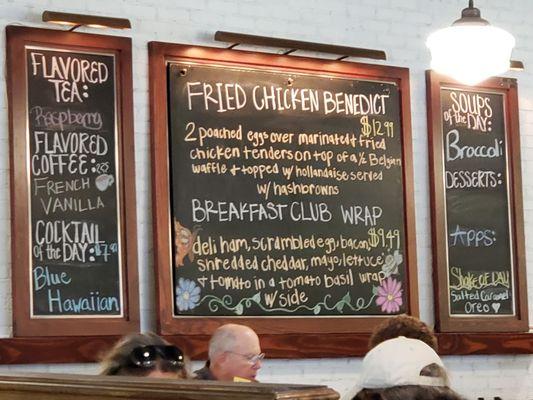 FLAVORED
TEA:
Raspberry
FLAVORED
COFFEE:
FRENCH
VANILLA
COCKTAIL
of the DAY:
Blue
Hawaiian
FRIED CHICKEN BENEDICT
$12.99
2 poached eggs over marinated + fried
chicken tenders on top of a ½ Belgian
waffle + topped w/ hollandaise served
w/ hashbrowns
BREAKFAST CLUB WRAP
$9.49
deli ham, scrambled egg, bacon,
shredded cheddar, mayo, lettuce
+ tomato in a tomato basil wrap
w/ side
SOUPS
of the DAY:
Broccoli
DESSERTS:
APPS:
SHAKE OF DAY
Salted Caramel
OREO